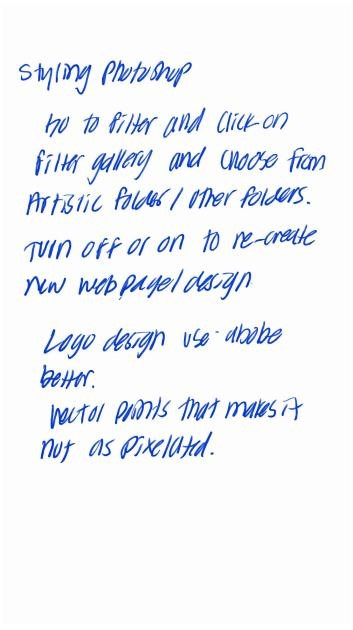 Styling Photoshop
Go to filter and click on
filter gallery and choose from
Artistic folder / other folders.
Turn off or on to re-create
new webpage/design
Logo design use - abobe
better.
vector points that makes it
not as pixelated.